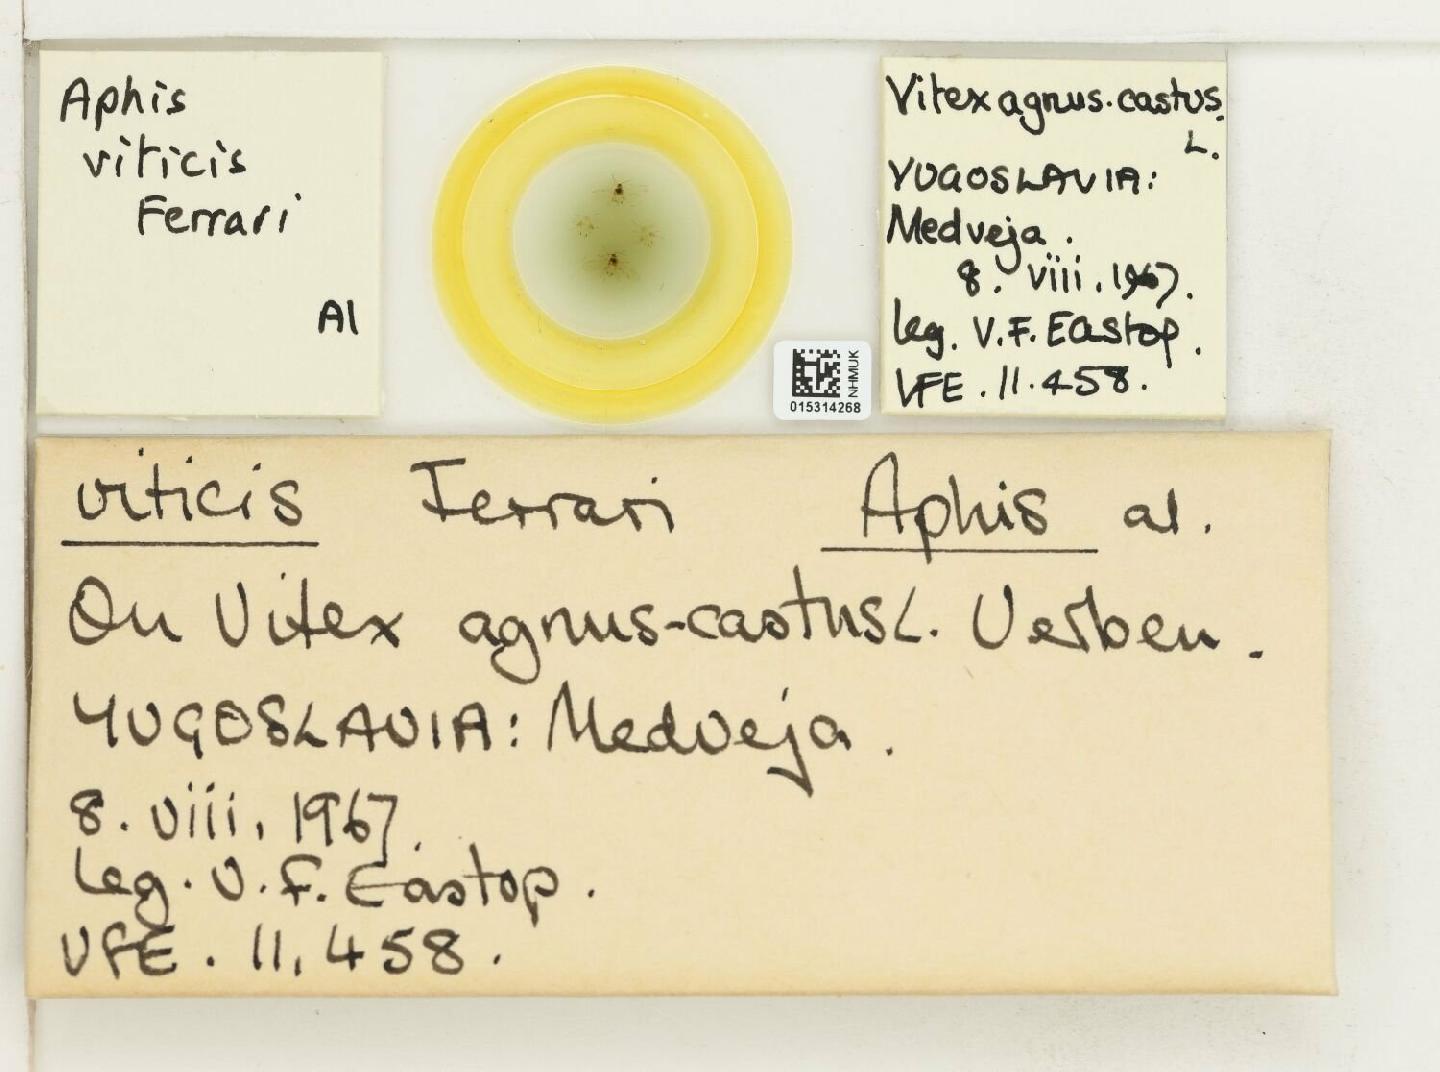 Aphis
viticis
Ferrari
Al
NHMUK
015314268
Vitex agnus-castus.
L.
YUGOSLAVIA:
Medveja.
8. viii. 1967.
leg. V.F. Eastop.
VFE. 11.458.
viticis Ferrari Aphis al.
On Vitex agnus-castus L. Verben.
YUGOSLAVIA: Medveja.
8. viii. 1967.
Leg. V. F. Eastop.
VFE. 11,458.